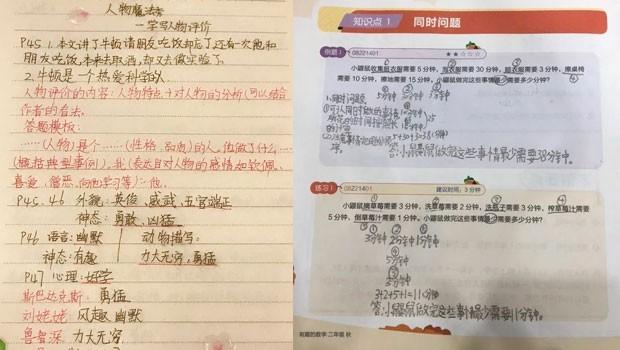 人物魔法秀
一学写人物评价
P45 1.本文讲了牛顿请朋友吃饭却忘了还有一次他和
朋友吃饭,本来去取酒,却又去做实验了。
2.牛顿是一个热爱科学的人
人物评价的内容:人物特点+对人物的分析(可以结合
作者的看法。
答题模板:
……(人物)是个……(性格,品质)的人,他做了什么……
(概括典型事例),我(表达自对人物的感情如钦佩、
喜爱、憎恶、向他学习等)一他。
P45、46 外貌:英俊、威武、五官端正
神态:勇敢、凶猛
P46 语言:幽默 动物描写:
神态:有趣 力大无穷,勇猛
P47 心理:好学
斯巴达克斯:勇猛
刘姥姥:风趣幽默
鲁智深:力大无穷
知识点1 同时问题
例题1 08Z21401 ★★☆☆☆
小鼹鼠收集脏衣服需要5分钟,洗衣服需要30分钟,晾衣服需要3分钟,擦桌椅
需要10分钟,擦地需要15分钟,小鼹鼠做完这些事情最少需要多少分钟?
5分钟 30分钟 3分钟
5+30+3=38分钟
答:小鼹鼠做完这些事情最少需要38分钟。
练习1 08Z21401 建议时间:3分钟
小鼹鼠摘草莓需要3分钟,洗草莓需要2分钟,洗瓶子需要3分钟,榨草莓汁需要
5分钟,倒草莓汁需要1分钟。小鼹鼠做完这些事情最少需要多少分钟?
3分钟 2分钟
5分钟
3+2+5+1=11分钟
答:小鼹鼠做完这些事情最少需要11分钟。
有趣的数学·二年级 秋